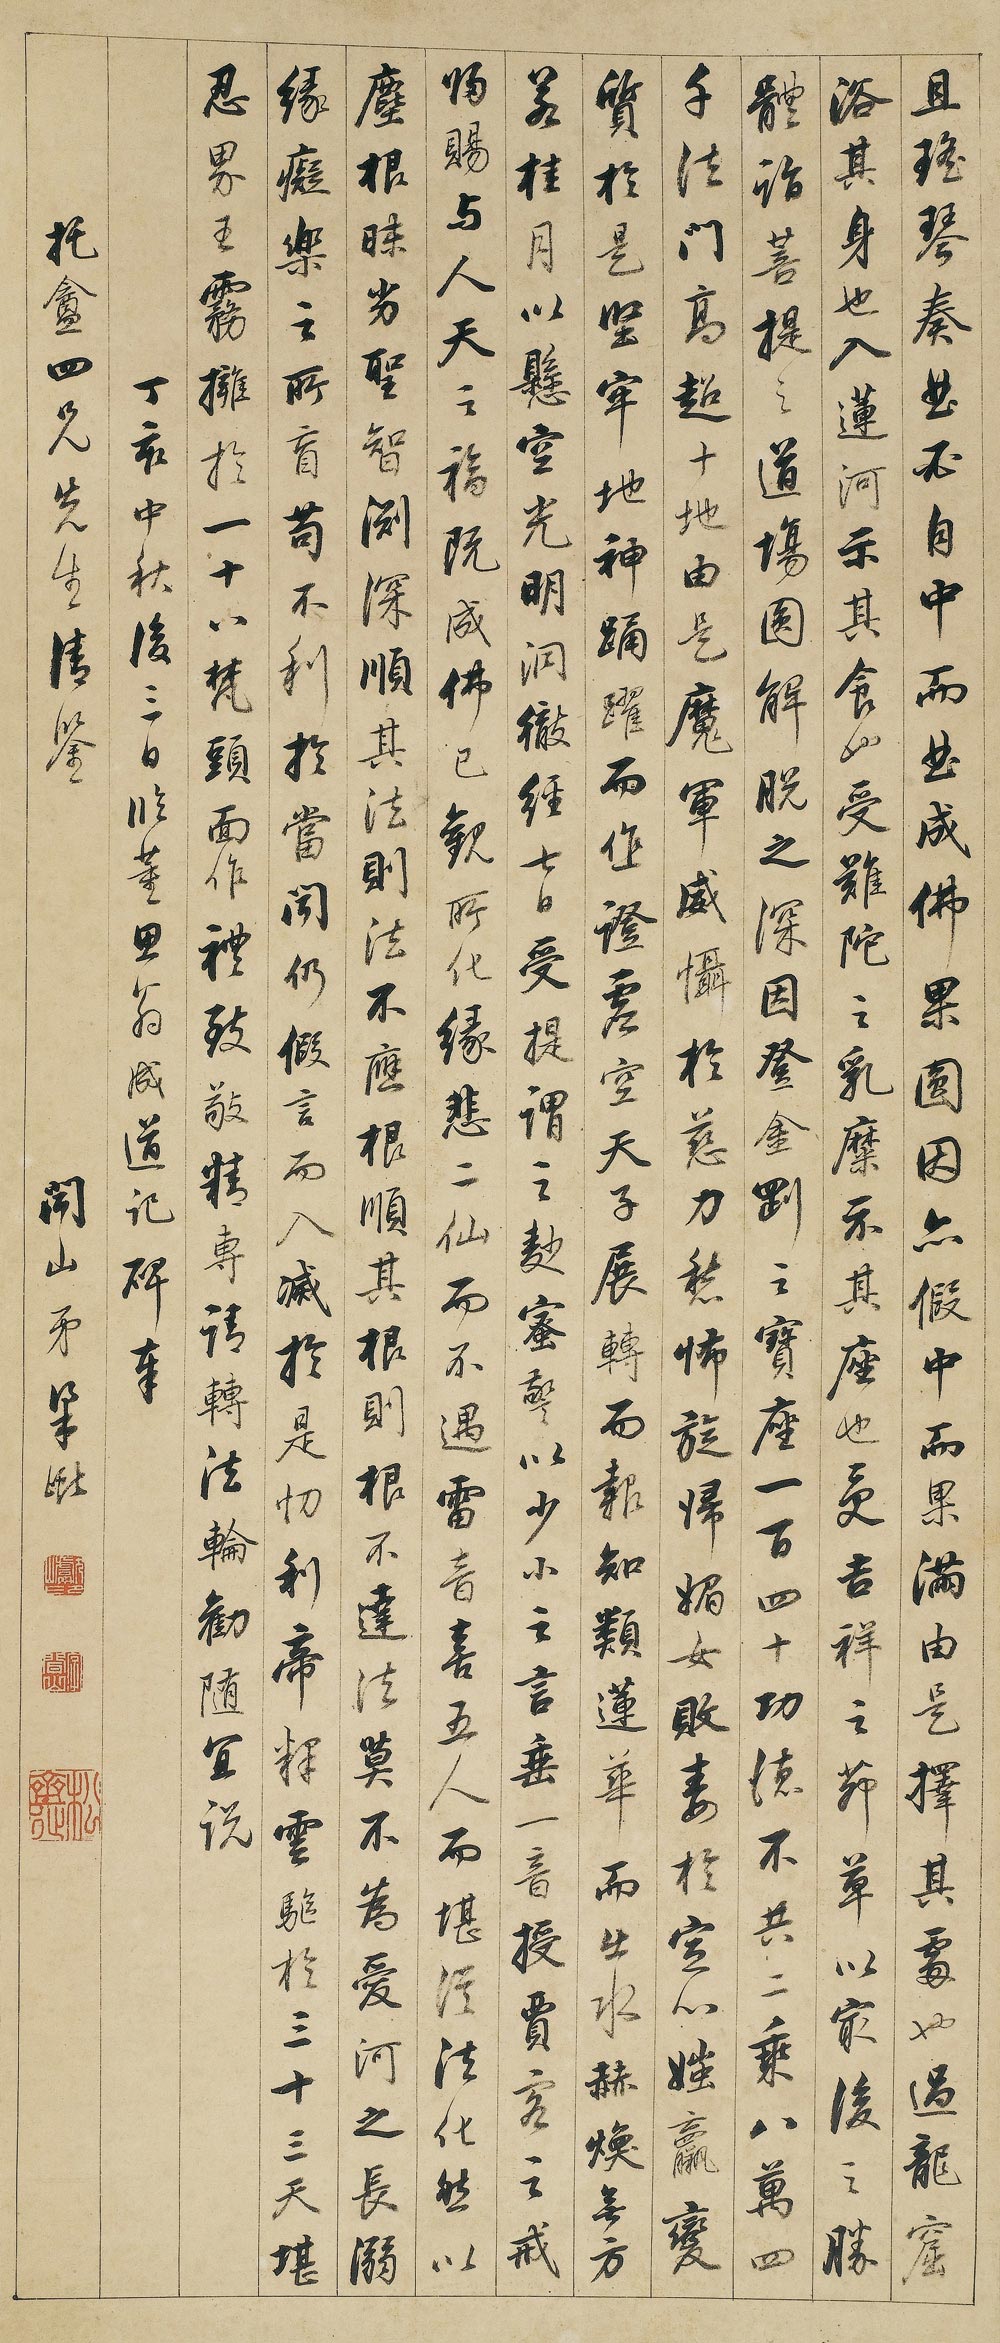 且瑤琴奏曲不自中而曲成佛果圓因亦假中而果滿由是擇其處也過龍窟
浴其身也入蓮河示其食也受難陀之乳糜示其座也受吉祥之茆草以最後之勝
體詣菩提之道場圓解脫之深因登金剛之寶座一百四十功德不共二乘八萬四
千法門高超十地由是魔軍威懾於慈力愁怖旋歸媚女敗毒於定心媸羸變
質於是堅牢地神踊躍而作證虛空天子展轉而報知類蓮華而出水赫煥無方
若桂月以懸空光明洞徹經七日受提謂之麨蜜警以少小之言垂一音授賈客之戒
歸賜與人天之福既成佛已觀所化緣悲二仙而不遇雷音喜五人而堪從法化然以
塵根昧劣聖智淵深順其法則法不應根順其根則根不達法莫不為愛河之長溺
緣癡樂之所盲苟不利於當聞仍假言而入滅於是忉利帝釋雲驅於三十三天堪
忍界王霧擁於一十八梵頭面作禮致敬精專請轉法輪勸隨宜說
丁亥中秋後三日臨董思翁成道記碑奉
托盦四兄先生清鑒
聞山弟梁巘